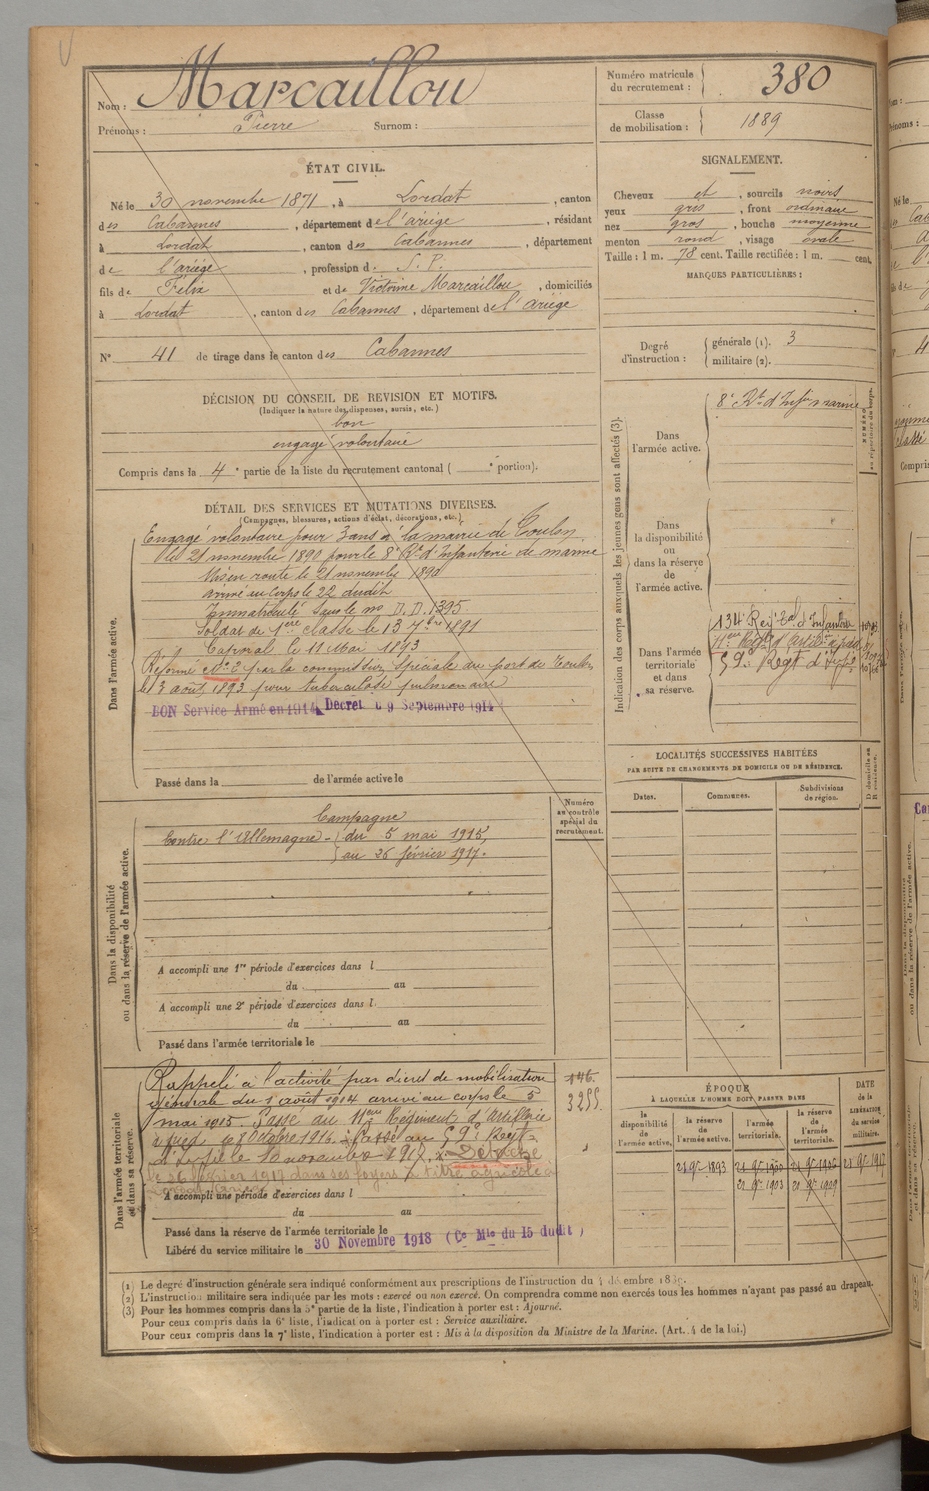 Nom : Marcaillou
Prénoms : Pierre Surnom :
Numéro matricule du recrutement : 380
Classe de mobilisation : 1889
ÉTAT CIVIL.
Né le 30 novembre 1871, à Lordat, canton
des Cabannes, département de l'ariège, résidant
à Lordat, canton des Cabannes, département
de l'ariège, profession d. S. P.
fils de Félix et de Victorine Marcaillou, domiciliés
à Lordat, canton des Cabannes, département de l'ariège
N° 41 de tirage dans le canton des Cabannes
SIGNALEMENT.
Cheveux et, sourcils noirs
yeux gris, front ordinaire
nez gros, bouche moyenne
menton rond, visage ovale
Taille : 1 m. 78 cent. Taille rectifiée : 1 m. cent.
MARQUES PARTICULIÈRES :
Degré d'instruction : générale (1). 3
militaire (2).
DÉCISION DU CONSEIL DE REVISION ET MOTIFS.
(Indiquer la nature des dispenses, sursis, etc.)
bon
engagé volontaire
Compris dans la 4e partie de la liste du recrutement cantonal ( e portion).
DÉTAIL DES SERVICES ET MUTATIONS DIVERSES.
(Campagnes, blessures, actions d'éclat, décorations, etc.)
Dans l'armée active.
Engagé volontaire pour 3 ans à la mairie de Toulon
le 21 novembre 1890 pour le 8e Rt d'Infanterie de marine
Mis en route le 21 novembre 1890
arrivé au corps le 22 dudit
Immatriculé sous le no D. D. 1395.
Soldat de 1ere classe le 13 7bre 1891
Caporal le 11 Mai 1893
Réformé No 2 par la commission spéciale du port de Toulon
le 3 août 1893 pour tuberculose pulmonaire
BON Service Armé en 1914, Décret du 9 Septembre 1914
Passé dans la de l'armée active le
Dans la disponibilité ou dans la réserve de l'armée active.
Numéro au contrôle spécial du recrutement.
Campagne
Contre l'Allemagne - du 5 mai 1915,
au 26 février 1917.
A accompli une 1re période d'exercices dans l
du au
A accompli une 2e période d'exercices dans l
du au
Passé dans l'armée territoriale le
Dans l'armée territoriale et dans sa réserve.
Rappelé à l'activité par décret de mobilisation
générale du 1 août 1914 arrivé au corps le 5
mai 1915. Passé au 11eme Régiment d'Artillerie
à pied le 8 Octobre 1916. Passé au 59e Regt
d'Infrie le 10 novembre 1916. Détaché
le 26 février 1917 dans ses foyers à titre agricole à
146.
3255.
A accompli une période d'exercices dans l
du au
Passé dans la réserve de l'armée territoriale le
Libéré du service militaire le 30 Novembre 1918 (Ce Mle du 15 dudit)
Indication des corps auxquels les jeunes gens sont affectés (3).
NUMÉRO au répertoire du corps.
Dans l'armée active.
8e Rt d'Infie marine
Dans la disponibilité ou dans la réserve de l'armée active.
Dans l'armée territoriale et dans sa réserve.
134e Regt Tal d'Infanterie
11eme Regt d'Artillie à pied
59e Regt d'Infie
LOCALITÉS SUCCESSIVES HABITÉES
PAR SUITE DE CHANGEMENTS DE DOMICILE OU DE RÉSIDENCE.
Dates. Communes. Subdivisions de région. D domicile ou R résidence.
ÉPOQUE
À LAQUELLE L'HOMME DOIT PASSER DANS
la disponibilité de l'armée active. la réserve de l'armée active. l'armée territoriale. la réserve de l'armée territoriale.
DATE de la LIBÉRATION du service militaire.
21 9re 1893 21 9re 1900 21 9re 1906 21 9re 1917
21 9re 1903 21 9re 1909
(1) Le degré d'instruction générale sera indiqué conformément aux prescriptions de l'instruction du 4 décembre 1889.
(2) L'instruction militaire sera indiquée par les mots : exercé ou non exercé. On comprendra comme non exercés tous les hommes n'ayant pas passé au drapeau.
(3) Pour les hommes compris dans la 5e partie de la liste, l'indication à porter est : Ajourné.
Pour ceux compris dans la 6e liste, l'indication à porter est : Service auxiliaire.
Pour ceux compris dans la 7e liste, l'indication à porter est : Mis à la disposition du Ministre de la Marine. (Art. 4 de la loi.)